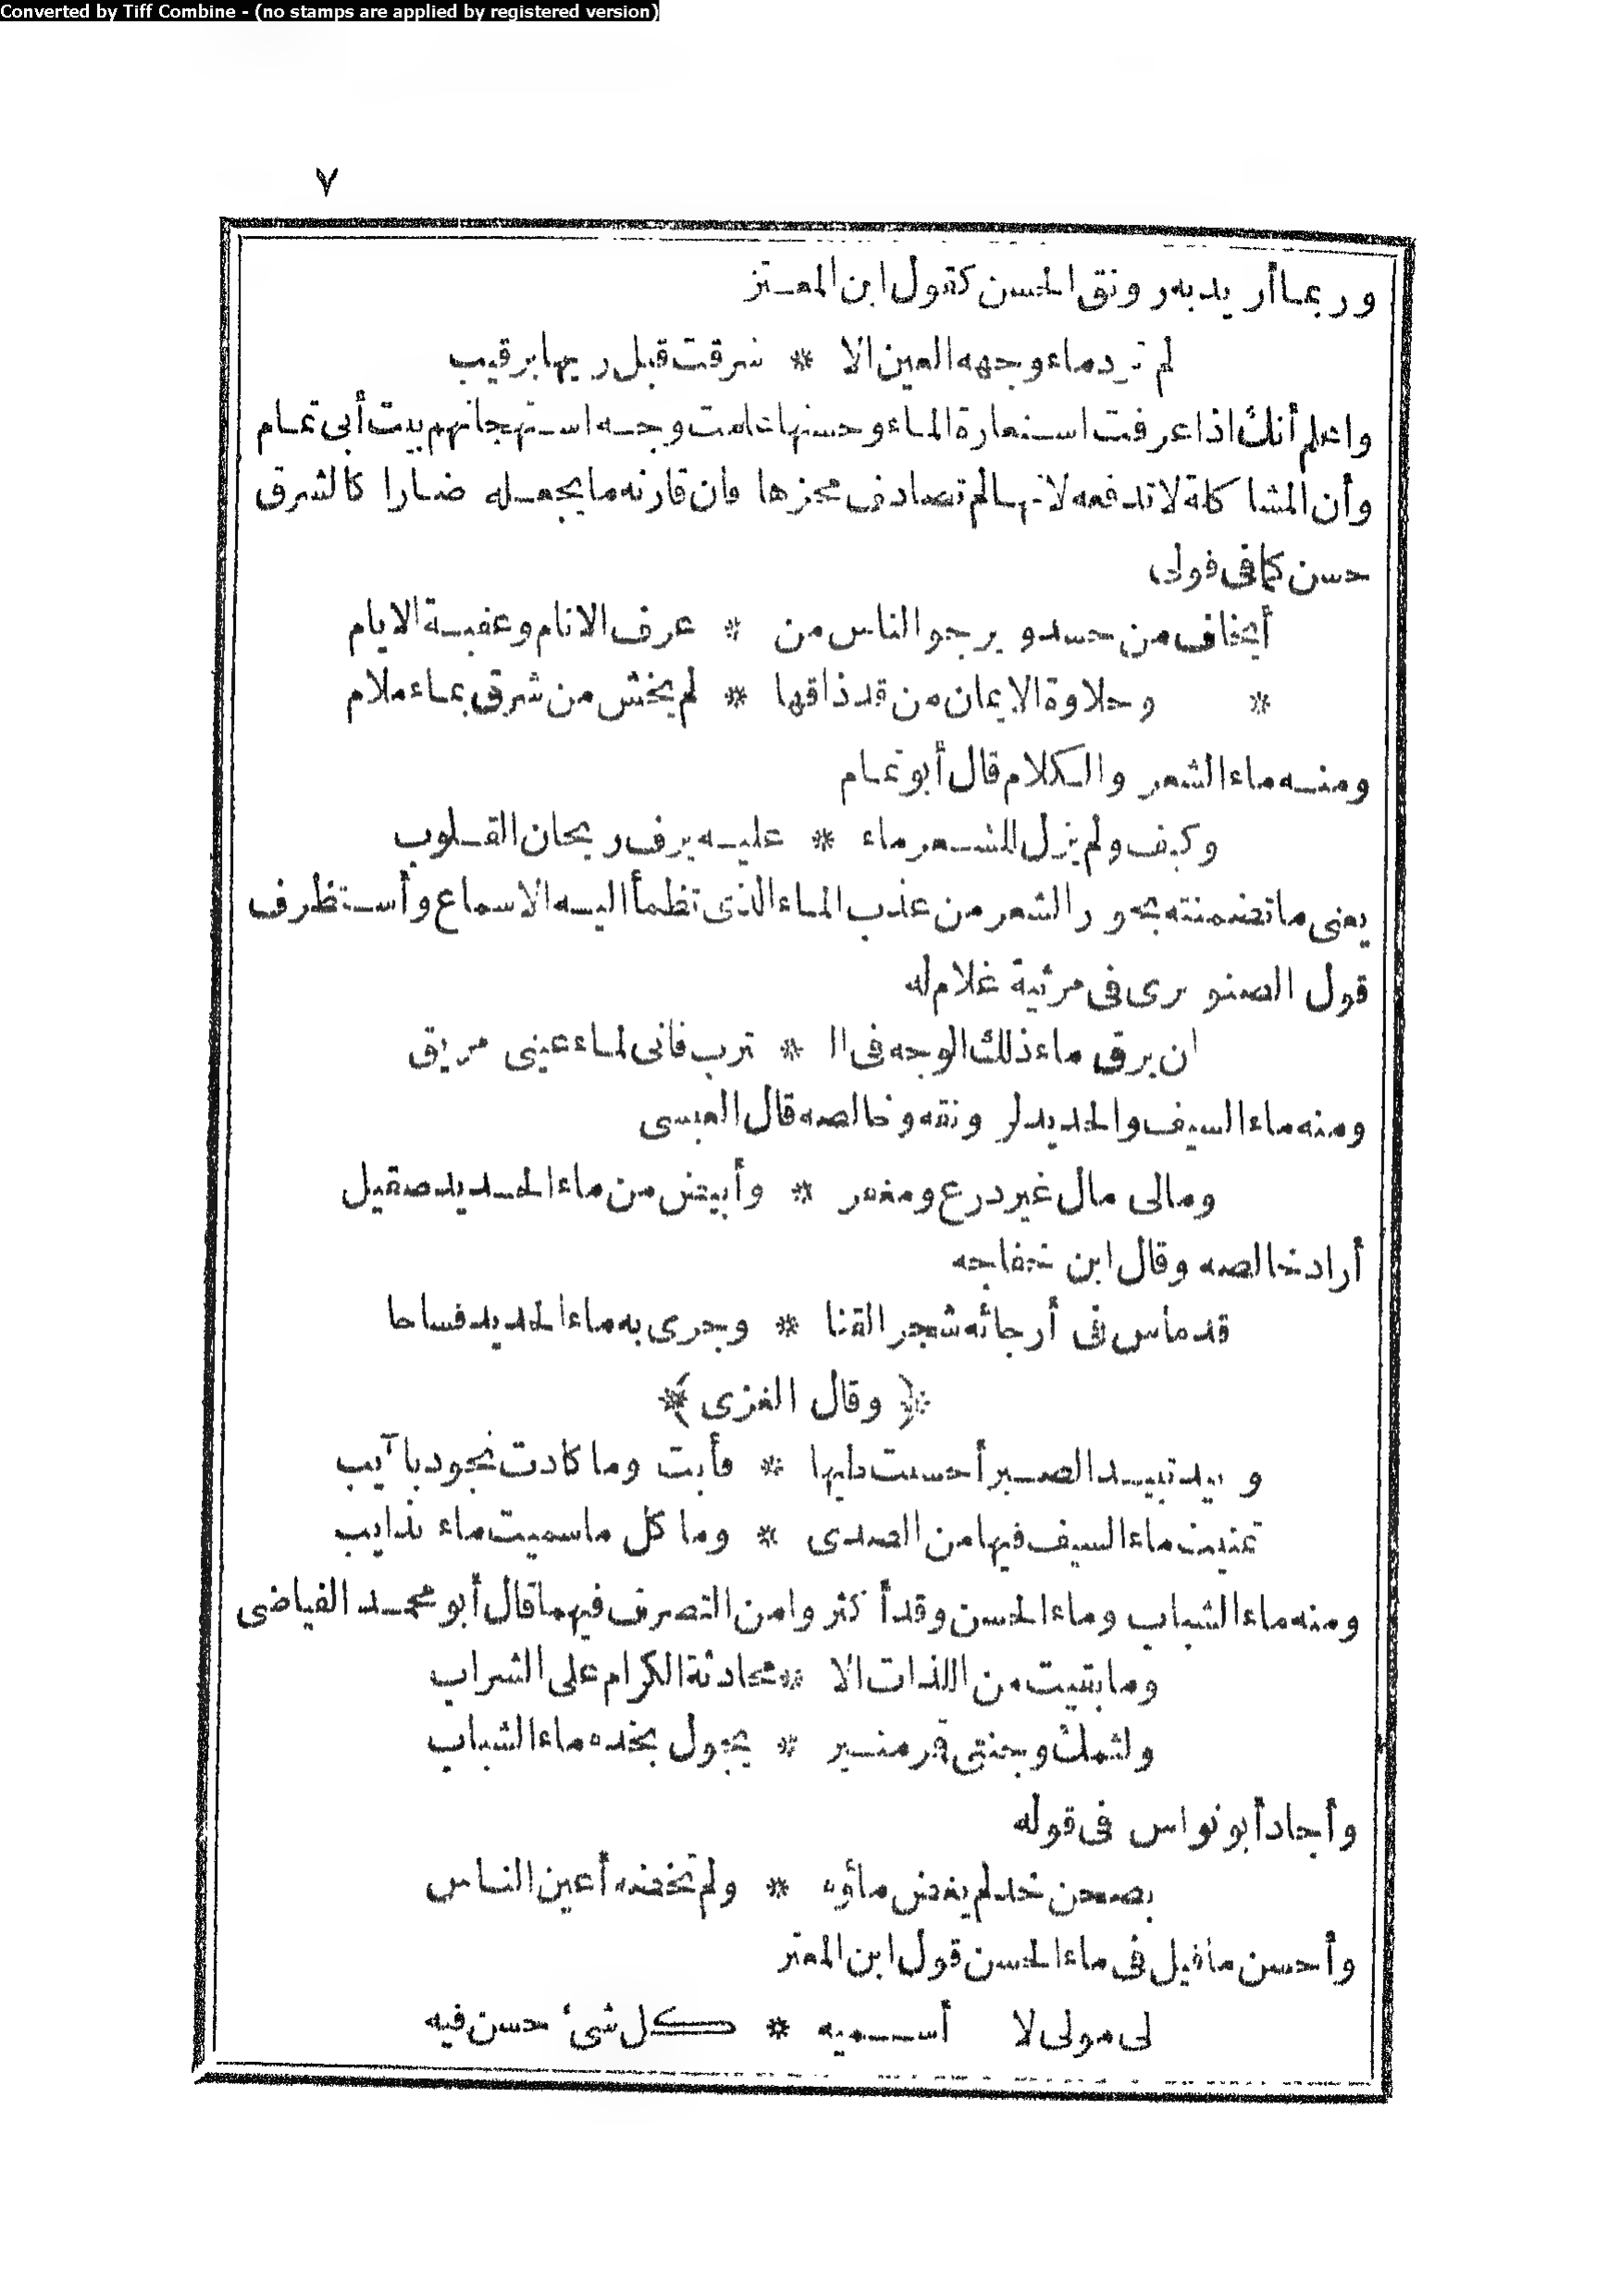 Converted by Tiff Combine - (no stamps are applied by registered version)
٧
وربما أريد به رونق الحسن كقول ابن المعتز
لم ترد ماء وجهه العين الا * شرقت قبل ريها برقيب
واعلم أنك اذا عرفت استعارة الماء وحسنها علمت وجه استهجانهم بيت أبى تمام
وأن المشاكلة لا تدفعه لانها لم تصادف محزها فان قارنه ما يجعله ضارا كالشرق
حسن كما فى قولى
أيخاف من حسد و يرجو الناس من * عرف الانام وعفبة الايام
* وحلاوة الايمان من قد ذاقها * لم يخش من شرق بماء ملام
ومنه ماء الشعر والكلام قال أبو تمام
وكيف ولم يزل للشعر ماء * عليه يرف ريحان القلوب
يعنى ما تضمنته بحور الشعر من عذب الماء الذى تظمأ اليه الاسماع وأستظرف
قول الصنوبرى فى مرثية غلام له
ان يرق ماء ذلك الوجه فى ال * ترب فانى لماء عينى مريق
ومنه ماء السيف والحديد لرونقه وخالصه قال العبسى
ومالى مال غير درع ومغفر * وأبيض من ماء الحديد صقيل
أراد خالصه وقال ابن خفاجه
قد ماس فى أرجائه شجر القنا * وجرى به ماء الحديد فساحا
﴿ وقال الغزى ﴾
وبيد تبيد الصبر أحسنت عليها * فأبت وما كادت تجود بآيب
تمنيت ماء السيف فيها من الصدى * وما كل ما سميت ماء بذايب
ومنه ماء الشباب وماء الحسن وقد أكثروا من التصرف فيهما قال أبو محمد الفياضى
وما بقيت من اللذات الا * محادثة الكرام على الشراب
ولثمك وجنتى قمر منير * يجول بخده ماء الشباب
وأجاد أبو نواس فى قوله
بصحن خد لم يغض ماؤه * ولم تخضه أعين الناس
وأحسن ما قيل فى ماء الحسن قول ابن المعتز
لى مولى لا أسميه * كل شئ حسن فيه